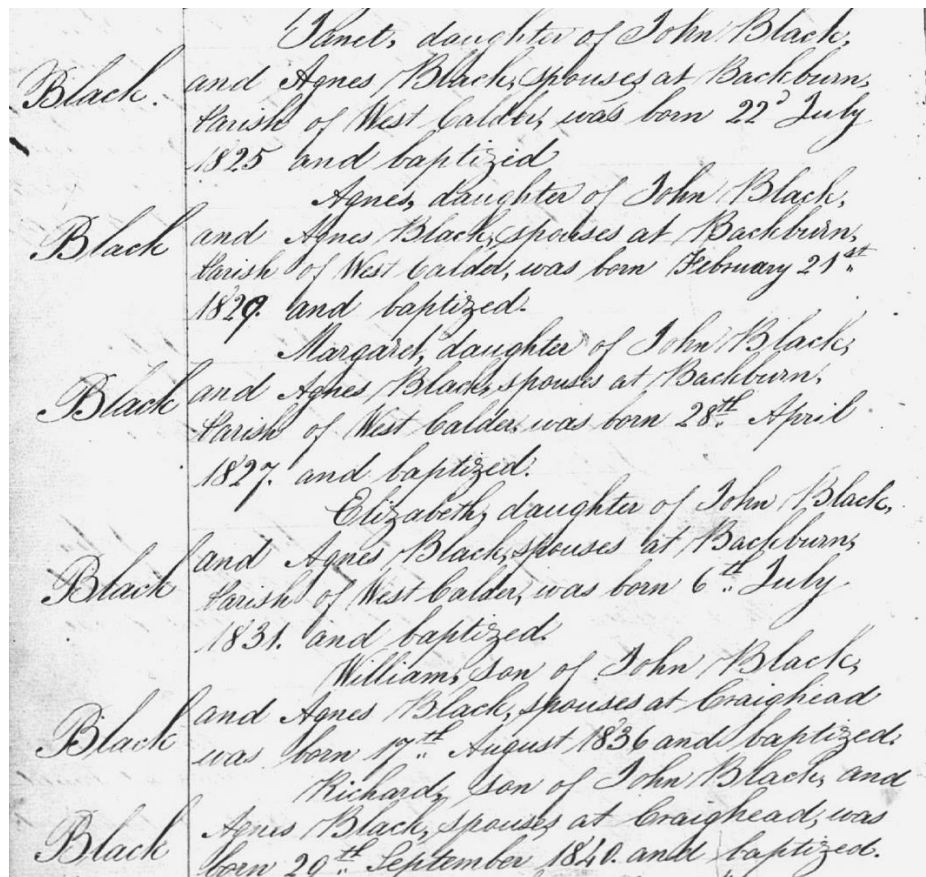 Janet, daughter of John Black,
Black. and Agnes Black, spouses at Backburn,
Parish of West Calder, was born 22d July
1825 and baptizid
Agnes, daughter of John Black,
Black and Agnes Black, spouses at Backburn,
Parish of West Calder, was born February 21st
1829. and baptized.
Margaret, daughter of John Black,
Black and Agnes Black, spouses at Backburn,
Parish of West Calder was born 28th April
1827. and baptized.
Elizabeth, daughter of John Black,
Black and Agnes Black, spouses at Backburn,
Parish of West Calder, was born 6th July
1831. and baptized.
William, son of John Black,
Black and Agnes Black, spouses at Craighead
was born 17th August 1836 and baptized.
Richard, son of John Black, and
Black Agnes Black, spouses at Craighead, was
born 29th September 1840. and baptized.